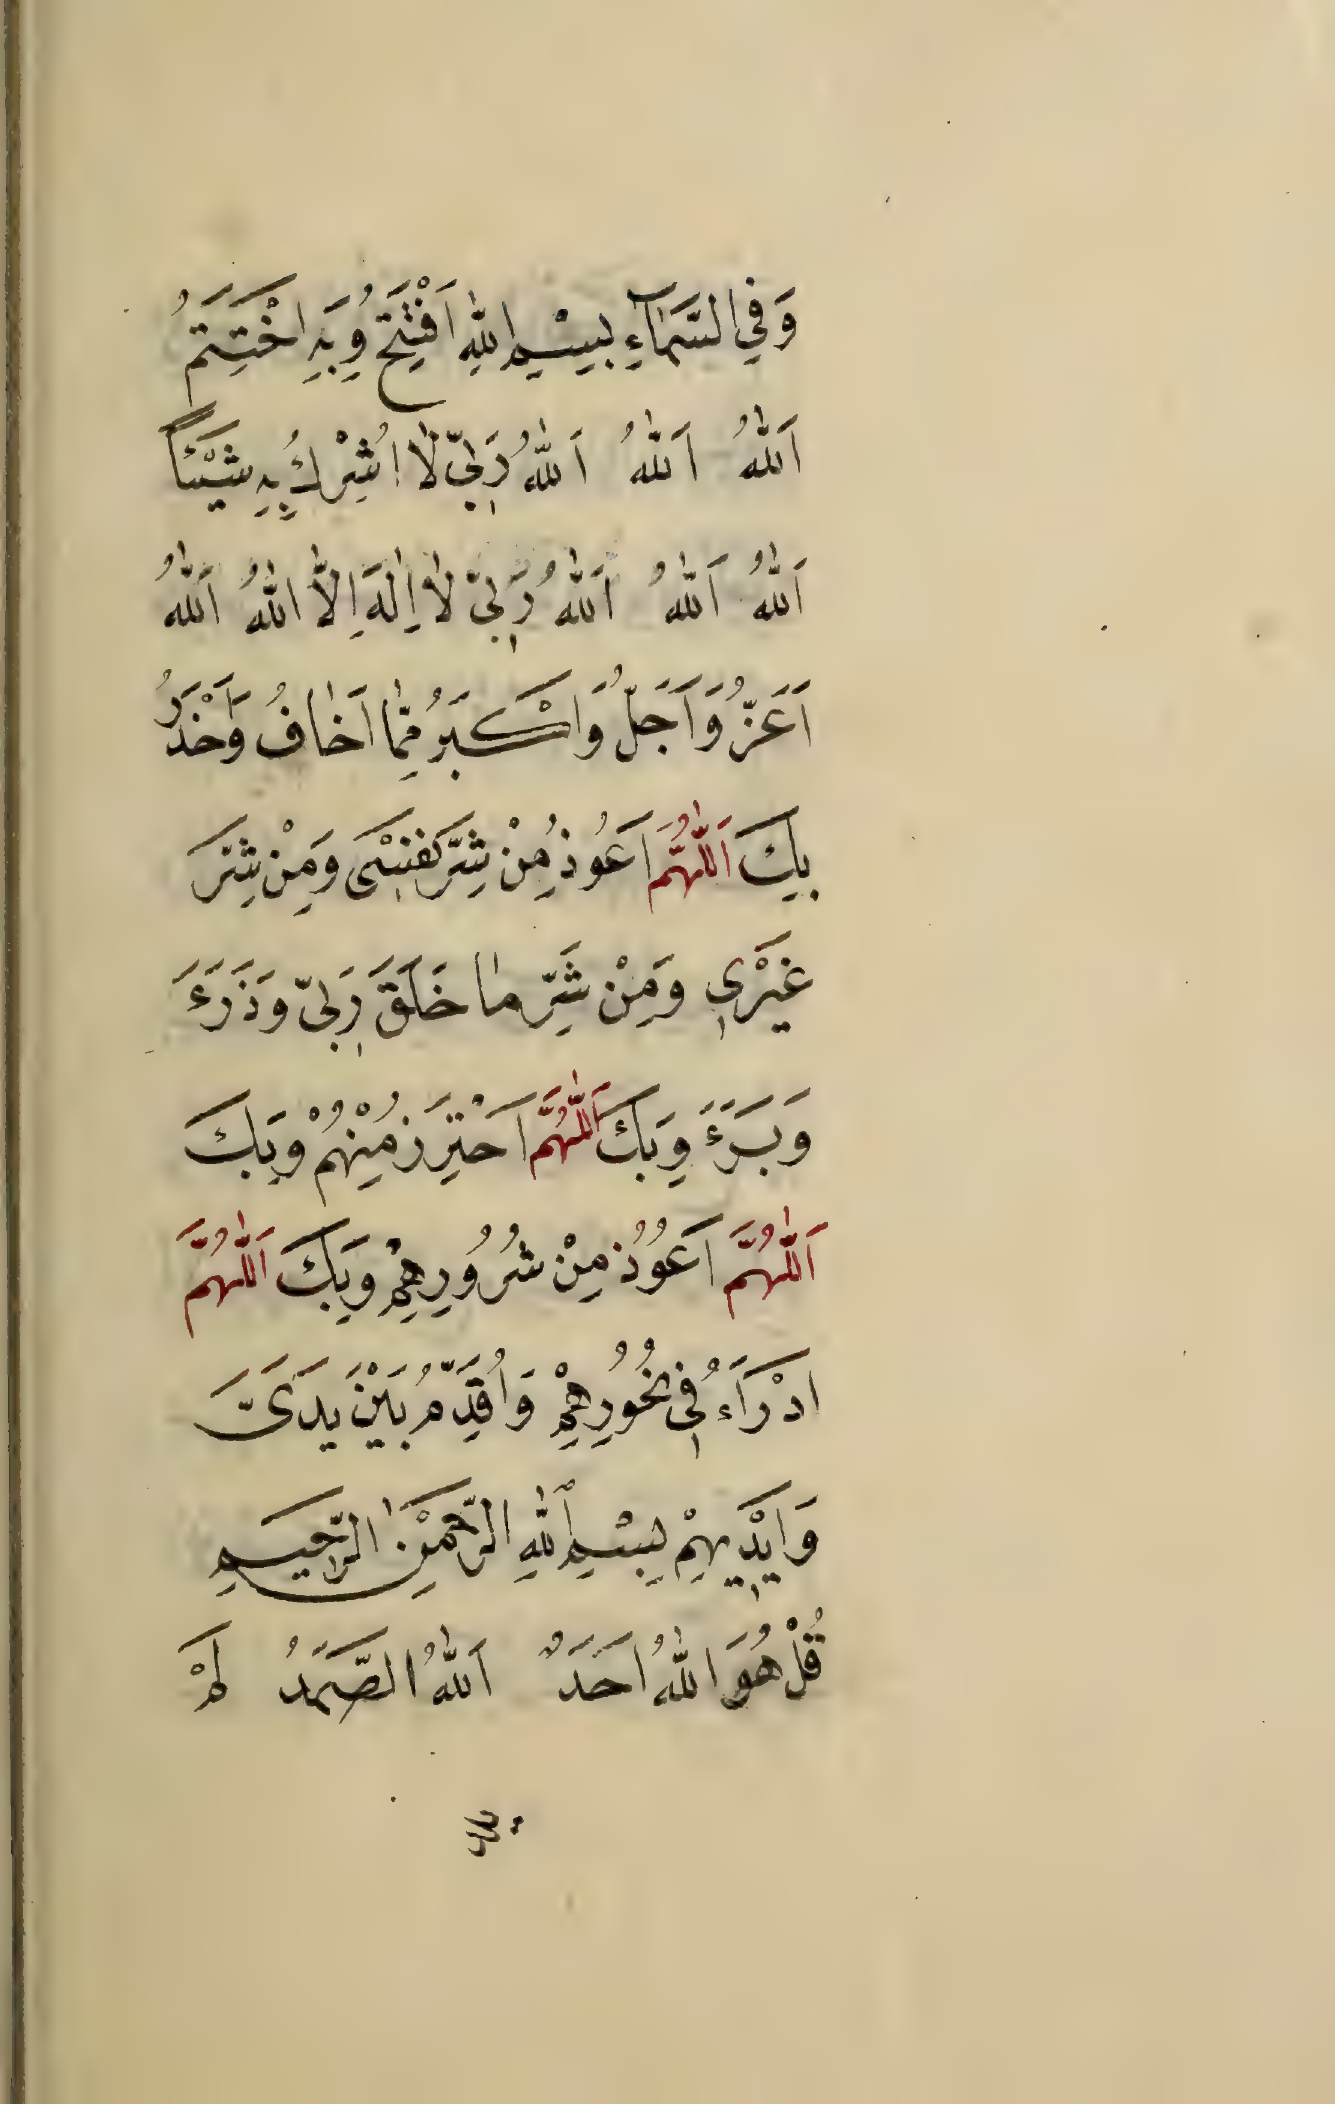 وَفِي السَّمَآءِ بِسْمِ اللهِ اَفْتَتِحُ وَبِهِ اَخْتَتِمُ
اَللهُ اَللهُ اَللهُ رَبِّي لَا اُشْرِكُ بِهِ شَيْئًا
اَللهُ اَللهُ اَللهُ رَبِّي لَا اِلٰهَ اِلَّا اللهُ اَللهُ
اَعَزُّ وَاَجَلُّ وَاَكْبَرُ مِمَّا اَخَافُ وَاَحْذَرُ
بِكَ اَللّٰهُمَّ اَعُوذُ مِنْ شَرِّ نَفْسِي وَمِنْ شَرِّ
غَيْرِي وَمِنْ شَرِّ مَا خَلَقَ رَبِّي وَذَرَءَ
وَبَرَءَ وَبِكَ اَللّٰهُمَّ اَحْتَرِزُ مِنْهُمْ وَبِكَ
اَللّٰهُمَّ اَعُوذُ مِنْ شُرُورِهِمْ وَبِكَ اَللّٰهُمَّ
اَدْرَاَءُ فِي نُحُورِهِمْ وَاُقَدِّمُ بَيْنَ يَدَىَّ
وَاَيْدِيهِمْ بِسْمِ اللهِ الرَّحْمٰنِ الرَّحِيمِ
قُلْ هُوَ اللهُ اَحَدٌ اَللهُ الصَّمَدُ لَمْ